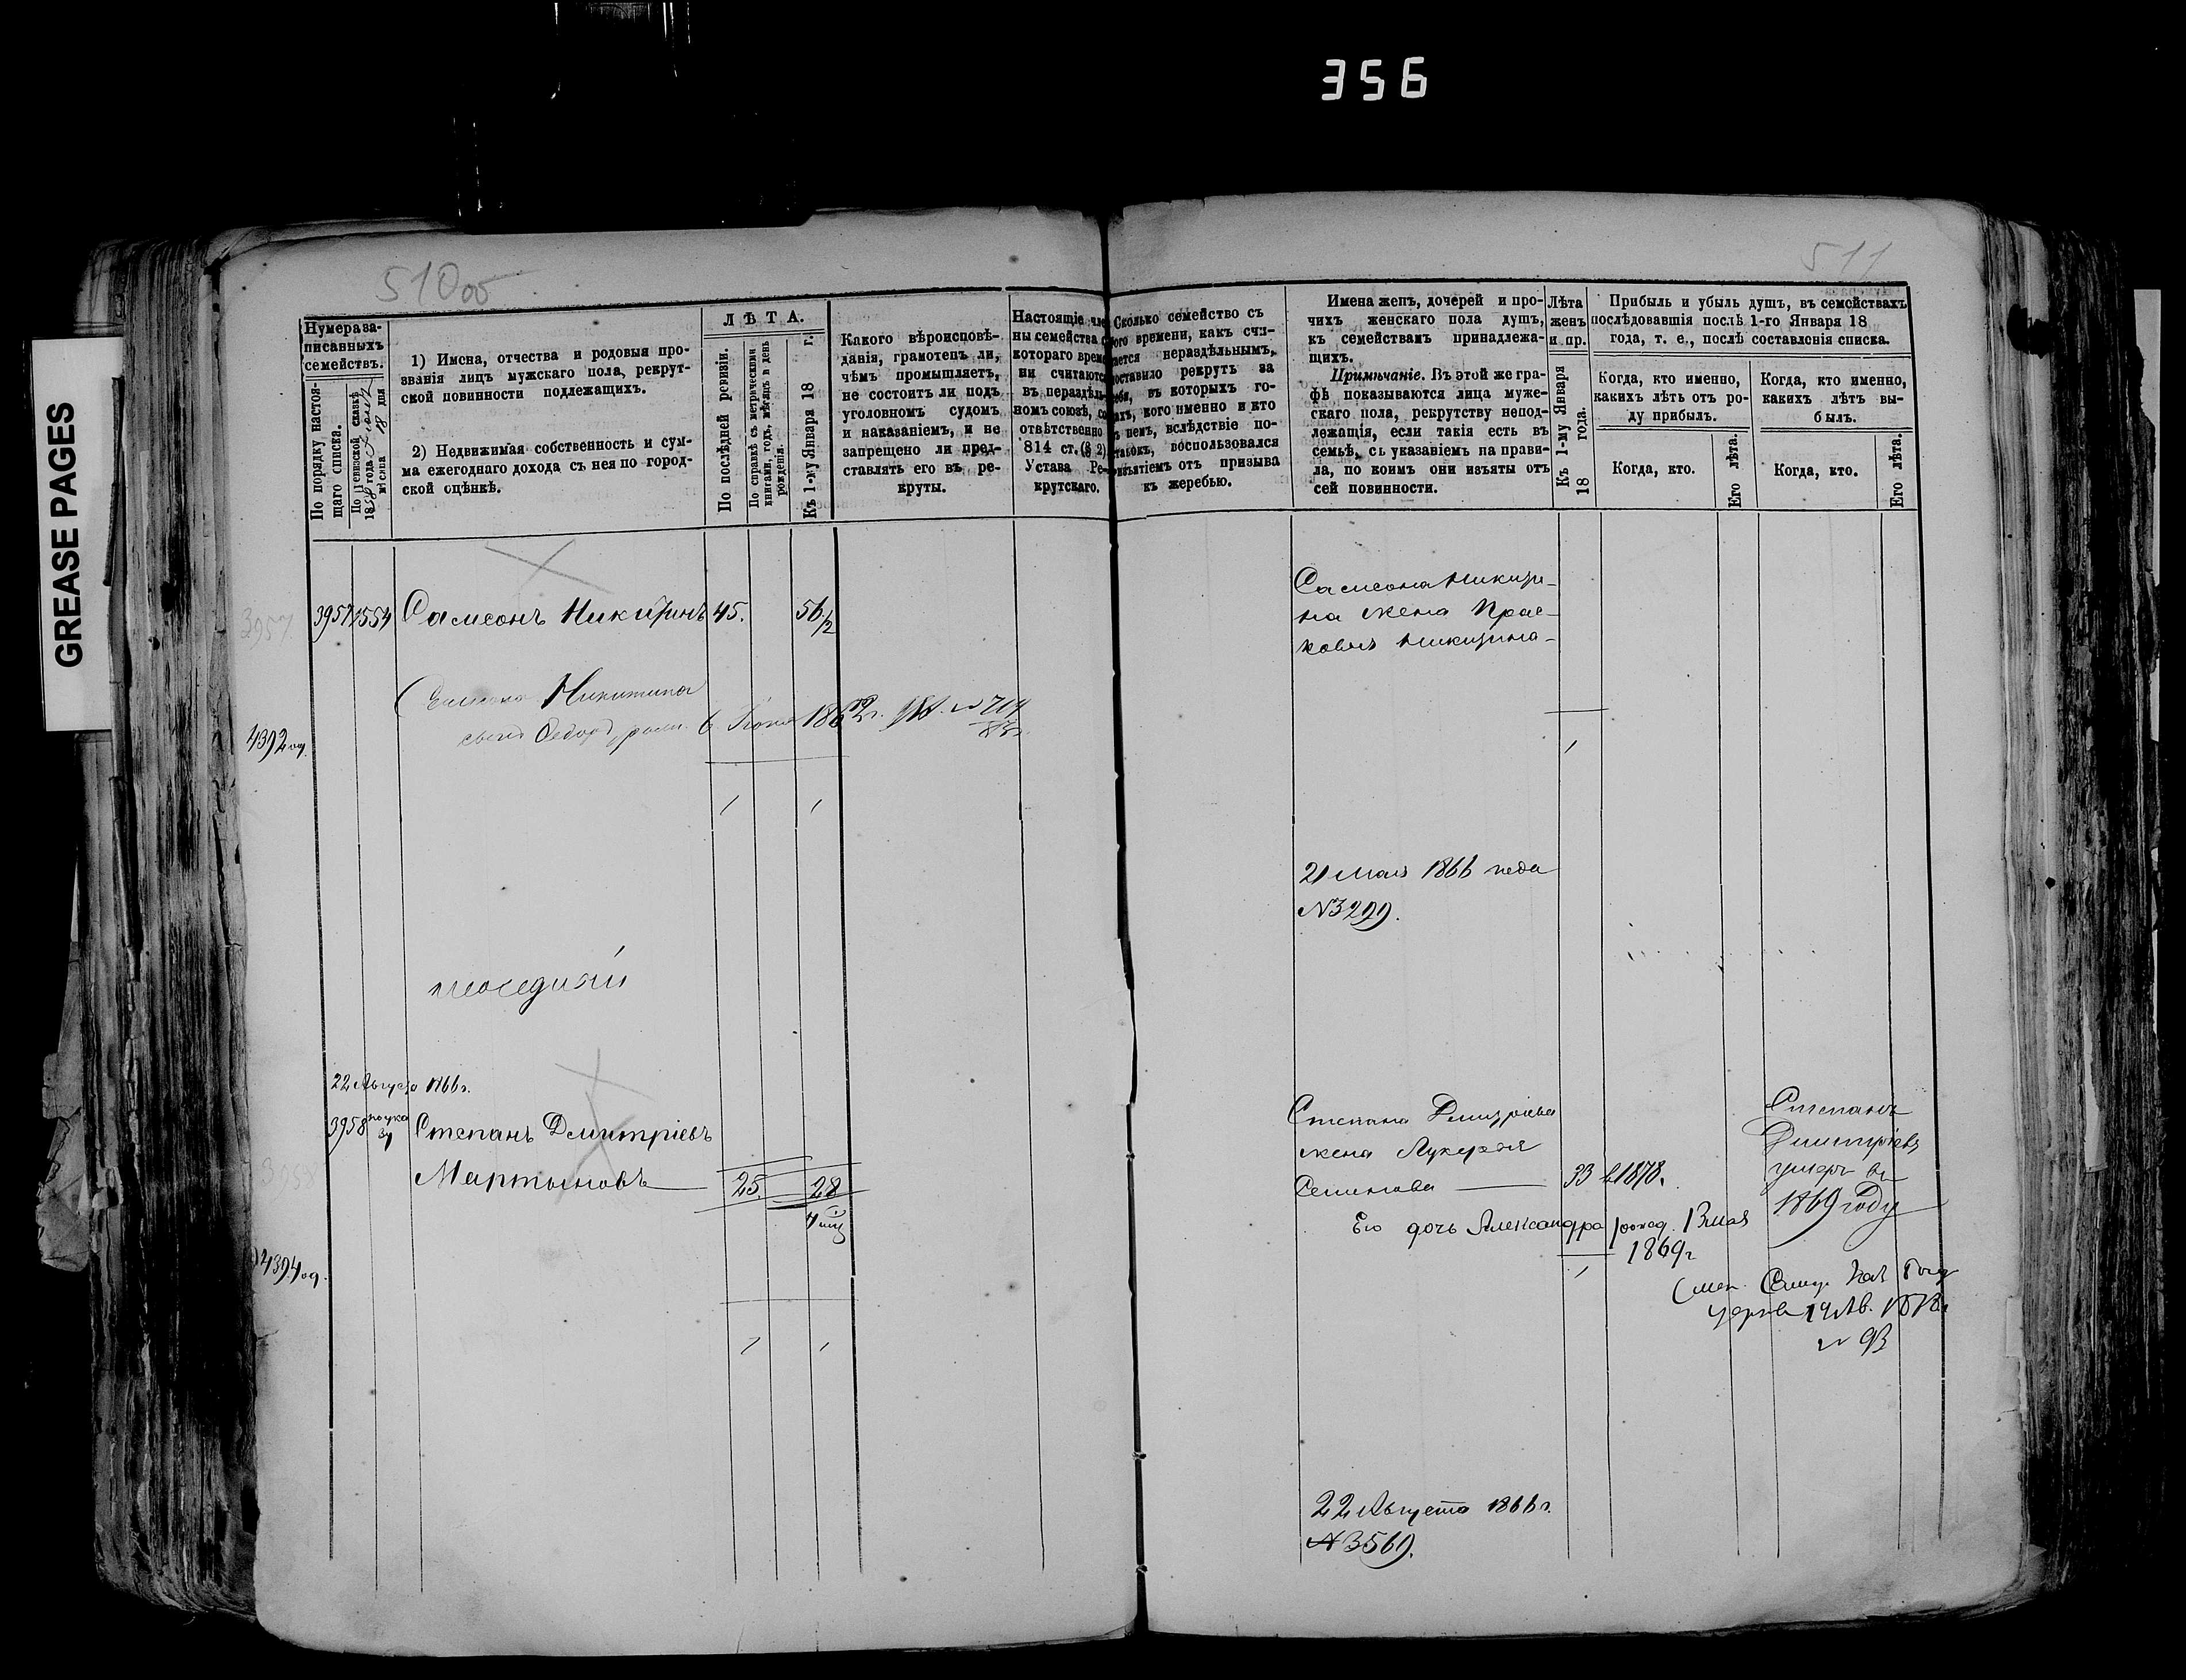 356
GREASE PAGES
510 об
511
Нумера за-
писанныхъ
семействъ.
По порядку настоя-
щаго списка.
По ревизской сказкѣ
1858 года
мѣсяца 18 дня
1) Имена, отчества и родовыя про-
званія лицъ мужскаго пола, рекрут-
ской повинности подлежащихъ.
2) Недвижимая собственность и сум-
ма ежегоднаго дохода съ нея по город-
ской оцѣнкѣ.
ЛѢТА.
По послѣдней ревизіи.
По справкѣ съ метрическими
книгами, годъ, мѣсяцъ и день
рожденія.
Къ 1-му Января 18 г.
Какого вѣроисповѣ-
данія, грамотенъ ли,
чѣмъ промышляетъ,
не состоитъ ли подъ
уголовномъ судомъ
и наказаніемъ, и не
запрещено ли пред-
ставлять его въ ре-
круты.
Настоящіе чле
ны семейства с
котораго време
ни считаются
въ нераздѣль
номъ союзѣ, со
отвѣтственно
814 ст. (§ 2)
Устава Ре-
крутскаго.
Сколько семейство съ
ого времени, какъ счи-
тается нераздѣльнымъ,
поставило рекрутъ за
себя, въ которыхъ го-
дахъ, кого именно и кто
въ немъ, вслѣдствіе по-
воспользовался
изъятіемъ отъ призыва
къ жеребью.
Имена женъ, дочерей и про-
чихъ женскаго пола душъ,
къ семействамъ принадлежа-
щихъ.
Примѣчаніе. Въ этой же гра-
фѣ показываются лица муже-
скаго пола, рекрутству непод-
лежащія, если такія есть въ
семьѣ, съ указаніемъ на прави-
ла, по коимъ они изъяты отъ
сей повинности.
Лѣта
женъ
и пр.
Къ 1-му Января
18 года.
Прибыль и убыль душъ, въ семействахъ
послѣдовавшія послѣ 1-го Января 18
года, т. е., послѣ составленія списка.
Когда, кто именно,
какихъ лѣтъ отъ ро-
ду прибылъ.
Когда, кто.
Его лѣта.
Когда, кто именно,
какихъ лѣтъ вы-
былъ.
Когда, кто.
Его лѣта.
3957
3957 1554 Самсонъ Никитинъ 45. 56 1/2
Самсона Никити-
на жена Прас-
ковья Никитина
Никитина
сынъ Ѳедоръ, 6
4392 од.
21 Мая 1866 года
N 3299.
22 Августа 1866 г.
3958 Степанъ Дмитріевъ
Мартыновъ 25. 28
3958
4394 од.
Степана Дмитріева
жена Лукерья
Семенова 33 в 1878.
Его дочь Александра 13 мая
1869 г
Степанъ
Дмитріевъ
умеръ въ
1869 году
N 93
22 Августа 1866 г.
N 3569.